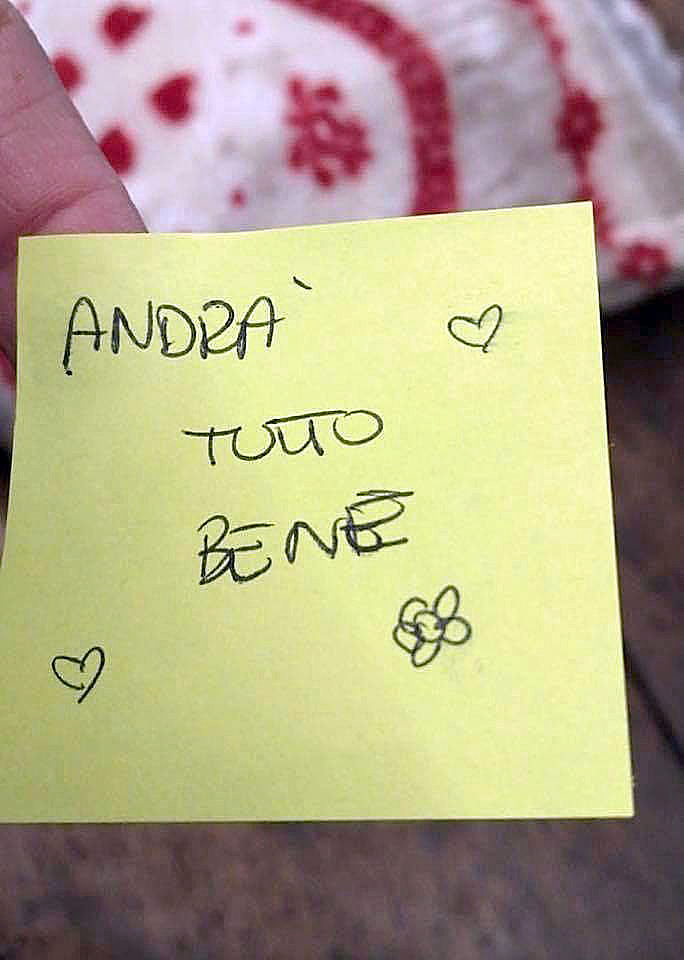 ANDRA`
TUTTO
BENE